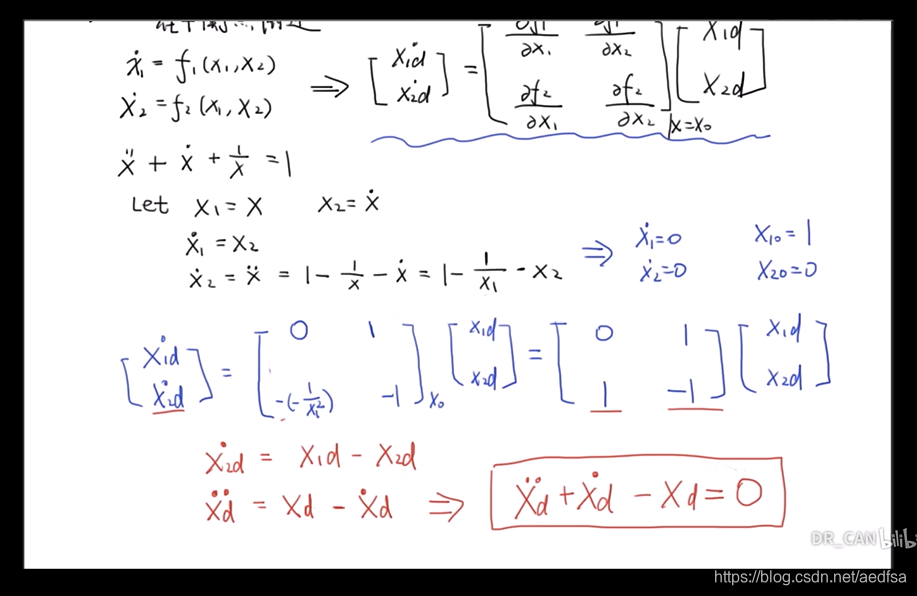 ẋ₁ = f₁(x₁,x₂) ⟹ [ẋ₁d ẋ₂d] = [∂f₁/∂x₁ ∂f₁/∂x₂; ∂f₂/∂x₁ ∂f₂/∂x₂]|x=x₀ [x₁d x₂d]
ẋ₂ = f₂(x₁,x₂)
ẍ + ẋ + 1/x = 1
Let x₁ = x x₂ = ẋ
ẋ₁ = x₂
ẋ₂ = ẍ = 1 - 1/x - ẋ = 1 - 1/x₁ - x₂ ⟹ ẋ₁=0 x₁₀=1
ẋ₂=0 x₂₀=0
[ẋ₁d; ẋ₂d] = [0 1; -(-1/x₁²) -1]x₀ [x₁d; x₂d] = [0 1; 1 -1] [x₁d; x₂d]
ẋ₂d = x₁d - x₂d
ẍd = xd - ẋd ⟹ ẍd + ẋd - xd = 0
DR_CAN bilibi
https://blog.csdn.net/aedfsa